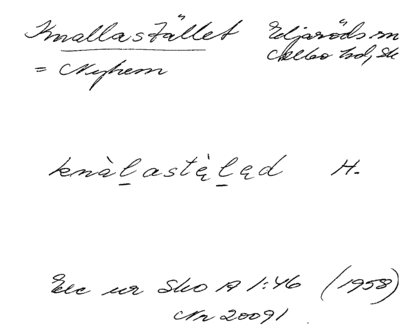 Knallastället Eljaröds sn
= Nyhem Albo hd, Sk
knàl̲astę̀l̲ęd H.
Exc ur Sko A 1:46 (1958)
Nr 20091